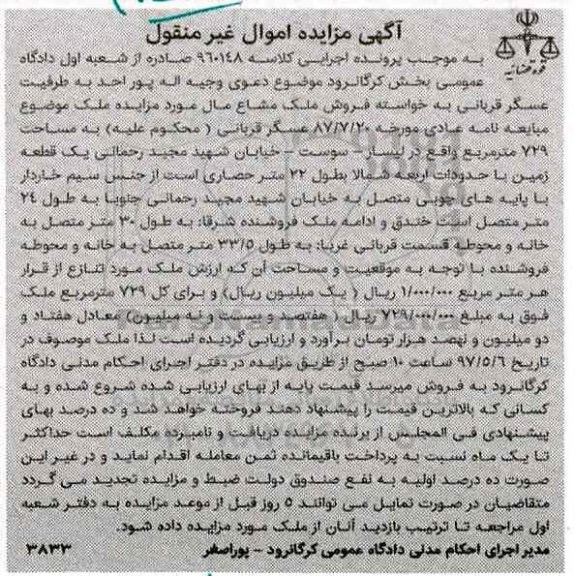 آگهی مزایده اموال غیر منقول
قوه قضائیه
به موجب پرونده اجرایی کلاسه ۹۶۰۱۴۸ صادره از شعبه اول دادگاه
عمومی بخش کرگانرود موضوع دعوی وجیه اله پور احد به طرفیت
عسگر قربانی به خواسته فروش ملک مشاع مال مورد مزایده ملک موضوع
مبایعه نامه عادی مورخه ۸۷/۷/۲۰ عسگر قربانی ( محکوم علیه) به مساحت
۷۲۹ مترمربع واقع در لیسار – سوست – خیابان شهید مجید رحمانی یک قطعه
زمین با حدودات اربعه شمالا بطول ۲۲ متر حصاری است از جنس سیم خاردار
با پایه های چوبی متصل به خیابان شهید مجید رحمانی جنوبا به طول ۲۴
متر متصل است خندق و ادامه ملک فروشنده شرقا: به طول ۳۰ متر متصل به
خانه و محوطه قسمت قربانی غربا: به طول ۳۳/۵ متر متصل به خانه و محوطه
فروشنده با توجه به موقعیت و مساحت آن که ارزش ملک مورد تنازع از قرار
هر متر مربع ۱/۰۰۰/۰۰۰ ریال ( یک میلیون ریال) و برای کل ۷۲۹ مترمربع ملک
فوق به مبلغ ۷۲۹/۰۰۰/۰۰۰ ریال ( هفتصد و بیست و نه میلیون) معادل هفتاد و
دو میلیون و نهصد هزار تومان برآورد و ارزیابی گردیده است لذا ملک موصوف در
تاریخ ۹۷/۵/۶ ساعت ۱۰ صبح از طریق مزایده در دفتر اجرای احکام مدنی دادگاه
کرگانرود به فروش میرسد قیمت پایه از بهای ارزیابی شده شروع شده و به
کسانی که بالاترین قیمت را پیشنهاد دهند فروخته خواهد شد و ده درصد بهای
پیشنهادی فی المجلس از برنده مزایده دریافت و نامبرده مکلف است حداکثر
تا یک ماه نسبت به پرداخت باقیمانده ثمن معامله اقدام نماید و در غیر این
صورت ده درصد اولیه به نفع صندوق دولت ضبط و مزایده تجدید می گردد
متقاضیان در صورت تمایل می توانند ۵ روز قبل از موعد مزایده به دفتر شعبه
اول مراجعه تا ترتیب بازدید آنان از ملک مورد مزایده داده شود.
مدیر اجرای احکام مدنی دادگاه عمومی کرگانرود – پوراصغر ۳۸۳۳